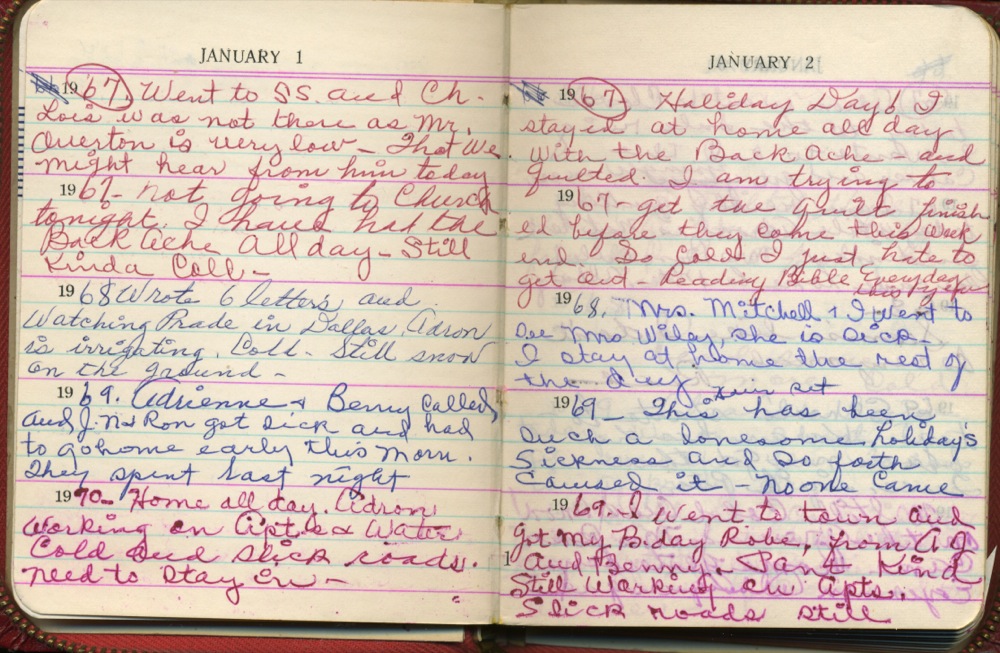 JANUARY 1
66 1967 Went to SS. and Ch.
Lois was not there as Mr.
Overton is very low - That we
might hear from him today
1967 - not going to Church
tonight. I have had the
Back Ache All day - Still
Kinda Coll -
1968 Wrote 6 letters and
Watching Prade in Dallas. Adron
is irrigating. Coll - Still snow
on the ground -
1969. Adrienne & Benny called,
and J.N & Ron got sick and had
to go home early this morn.
They spent last night
1970 - Home all day. Adron
Working on Apts & Water
Cold and slick roads.
need to stay in -
JANUARY 2
66 1967 Holiday Day! I
stayed at home all day
with the Back Ache - and
quilted. I am trying to
1967 - get the quilt finish
ed before they come this week
end. So Cold I just hate to
get out - Reading Bible Everyday
1968. Mrs. Mitchell & I went to
see Mrs Wiley, she is sick -
I stay at home the rest of
the day
1969 - This has been
such a lonesome holiday's
Sickness and so forth
caused it - No one Came
1969. - I went to town and
got my B.day Robe, from A J
And Benny - Pant Kind
Still Working on Apts.
Slick roads still